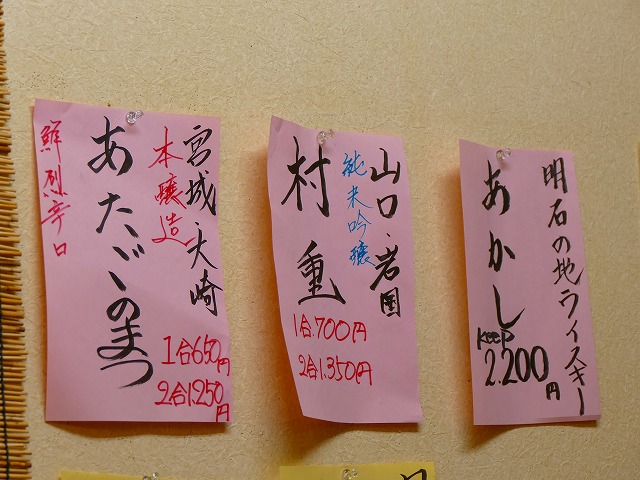 明石の地ウイスキー
あかし
keep
2.200円
山口・岩国
純米吟醸
村重
1合.700円
2合1.350円
宮城 大崎
本醸造
あたごのまつ
鮮烈辛口
1合650円
2合1.250円